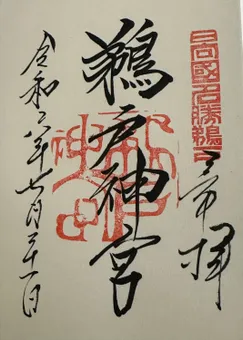 日向國名勝鵜戸
奉拝
鵜戸神宮
令和六年七月三十一日